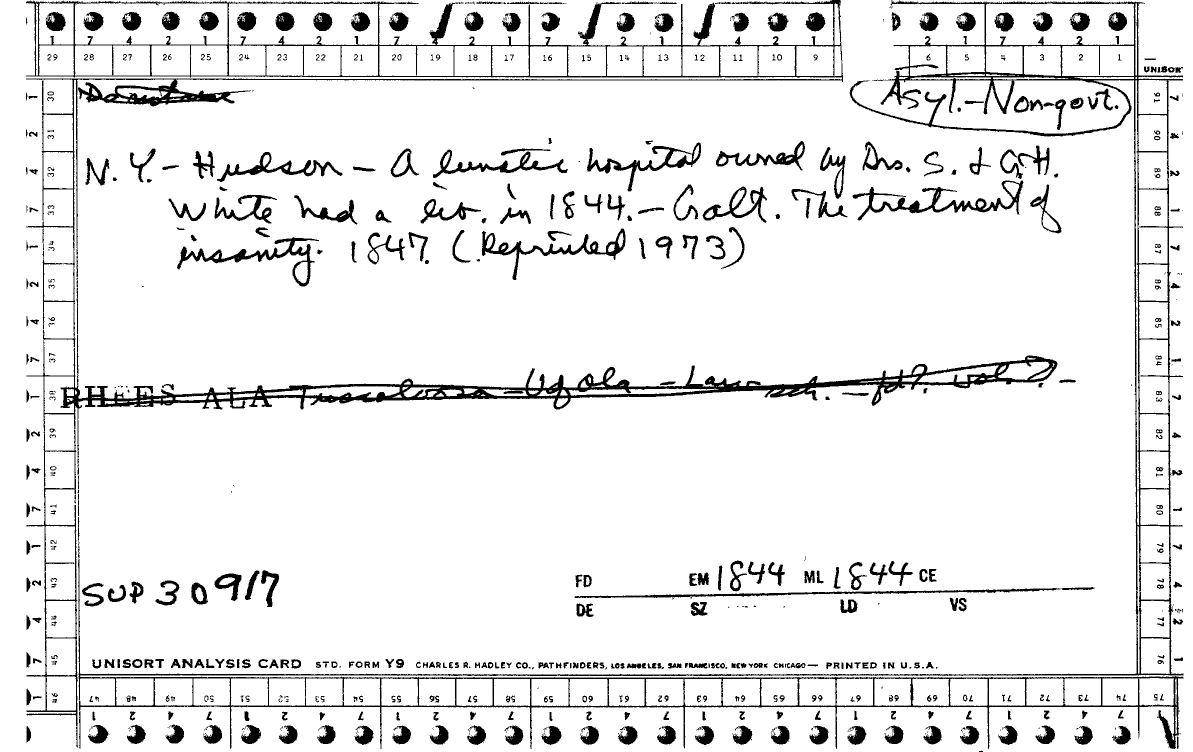 1 7 4 2 1 7 4 2 1 7 4 2 1 7 4 2 1 7 4 2 1 6 5 4 2 1
29 28 27 26 25 24 23 22 21 20 19 18 17 16 15 14 13 12 11 10 9 6 5 4 3 2 1
UNISORT
Asyl.-Non-govt.
N.Y.- Hudson - A lunatic hospital owned by Drs. S. & G.H.
White had a lib. in 1844. - Galt. The treatment of
insanity. 1847. (Reprinted 1973)
RHEES ALA Tuscaloosa - U of Ala - Law sch. - fd? vol.?-
SUP 30917
FD EM 1844 ML 1844 CE
DE SZ LD VS
UNISORT ANALYSIS CARD STD. FORM Y9 CHARLES R. HADLEY CO., PATHFINDERS, LOS ANGELES, SAN FRANCISCO, NEW YORK CHICAGO — PRINTED IN U.S.A.
30 31 32 33 34 35 36 37 38 39 40 41 42 43 44 45 46
91 90 89 88 87 86 85 84 83 82 81 80 79 78 77 76 75
47 48 49 50 51 52 53 54 55 56 57 58 59 60 61 62 63 64 65 66 67 68 69 70 71 72 73 74
1 2 4 7 1 2 4 7 1 2 4 7 1 2 4 7 1 2 4 7 1 2 4 7 1 2 4 7